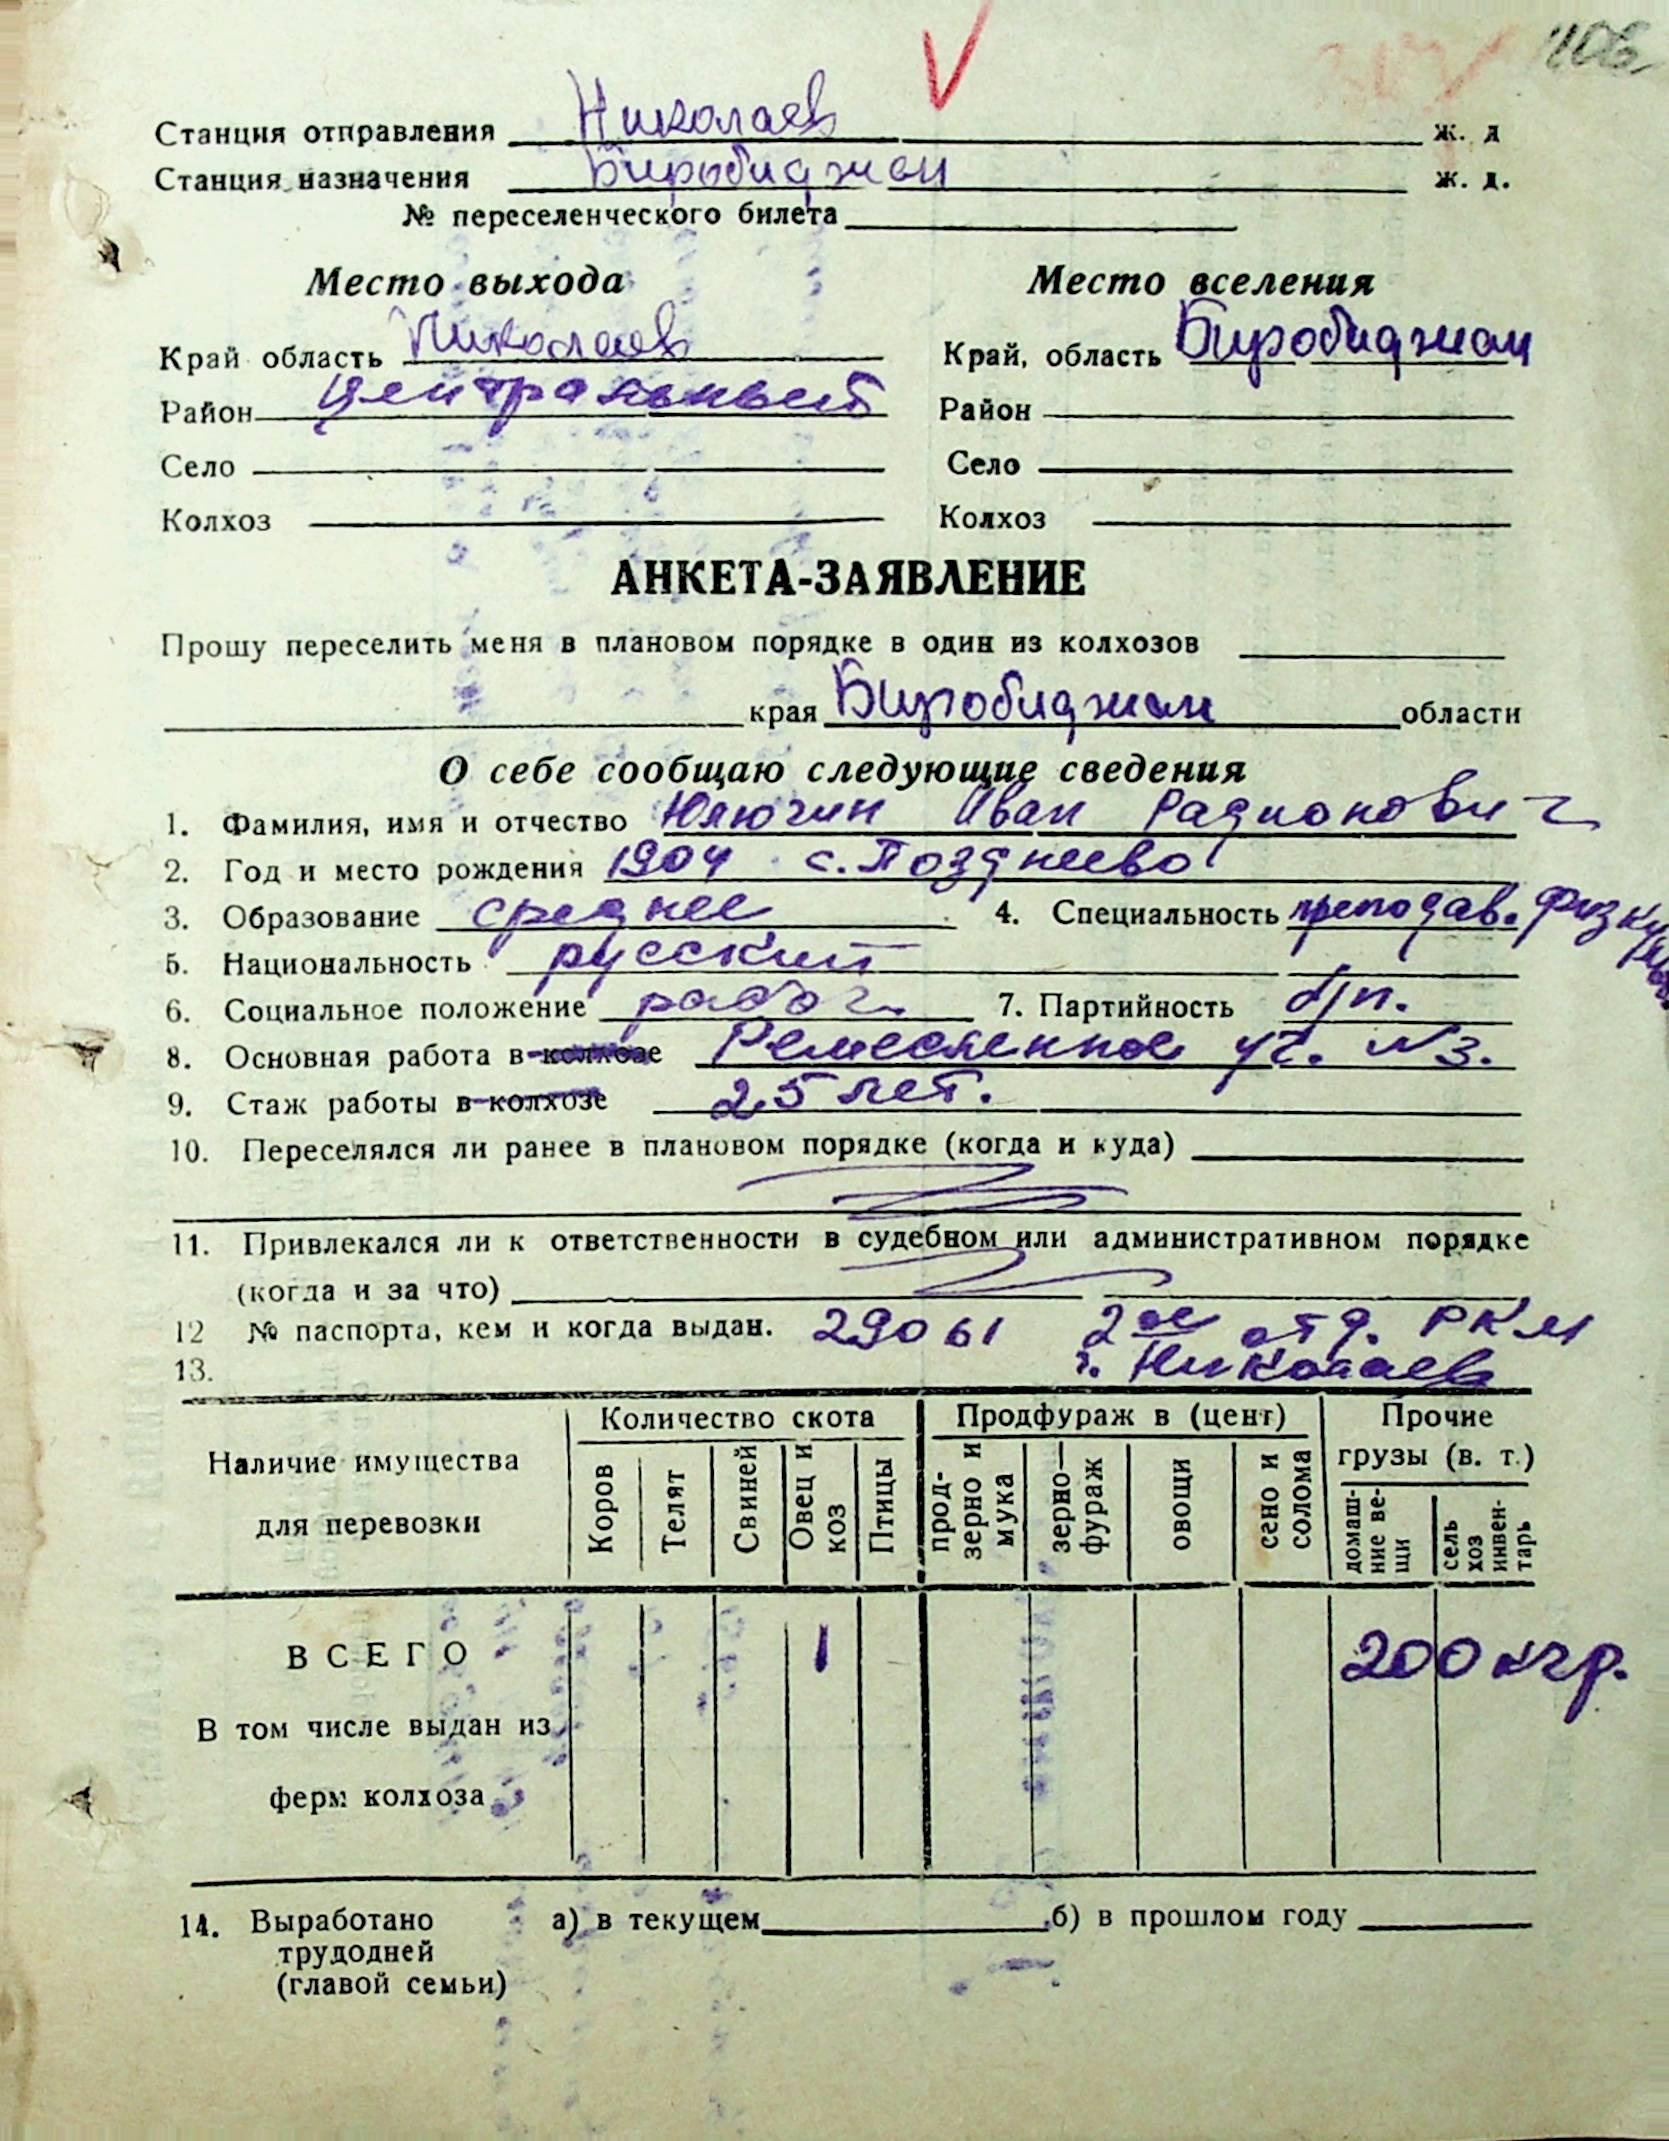 106
Станция отправления Николаев ж. д
Станция назначения Биробиджан ж. д.
№ переселенческого билета
Место выхода Место вселения
Край область Николаев Край, область Биробиджан
Район Центральный Район
Село Село
Колхоз Колхоз
АНКЕТА-ЗАЯВЛЕНИЕ
Прошу переселить меня в плановом порядке в один из колхозов
края Биробиджан области
О себе сообщаю следующие сведения
1. Фамилия, имя и отчество Юлючин Иван Радионович
2. Год и место рождения 1904 с. Позднеево
3. Образование среднее 4. Специальность преподав. физку
5. Национальность русский
6. Социальное положение рабоч. 7. Партийность б/п.
8. Основная работа в колхозе Ремесленное уч. №3.
9. Стаж работы в колхозе 25 лет.
10. Переселялся ли ранее в плановом порядке (когда и куда)
11. Привлекался ли к ответственности в судебном или административном порядке
(когда и за что)
12 № паспорта, кем и когда выдан. 29061 2ое отд. РКМ
13. г. Николаев
Наличие имущества для перевозки
Количество скота Продфураж в (цент) Прочие грузы (в. т.)
Коров Телят Свиней Овец и коз Птицы прод-зерно и мука зерно-фураж овощи сено и солома домаш-ние ве-щи сель хоз инвен-тарь
ВСЕГО 1 200 кгр.
В том числе выдан из
ферм колхоза
14. Выработано а) в текущем б) в прошлом году
трудодней
(главой семьи)